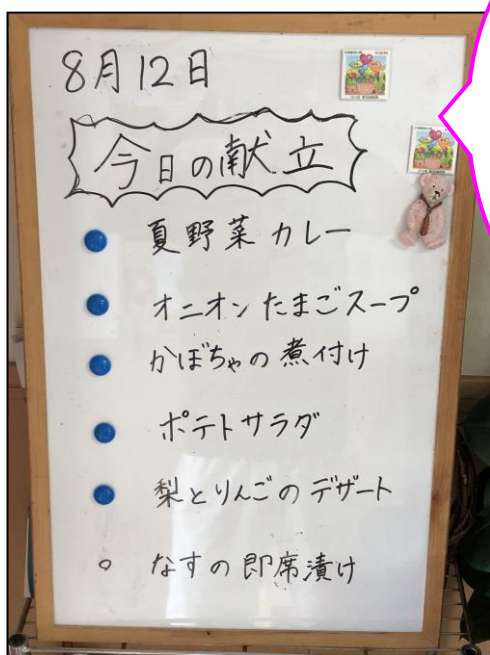 8月12日
今日の献立
夏野菜カレー
オニオンたまごスープ
かぼちゃの煮付け
ポテトサラダ
梨とりんごのデザート
なすの即席漬け